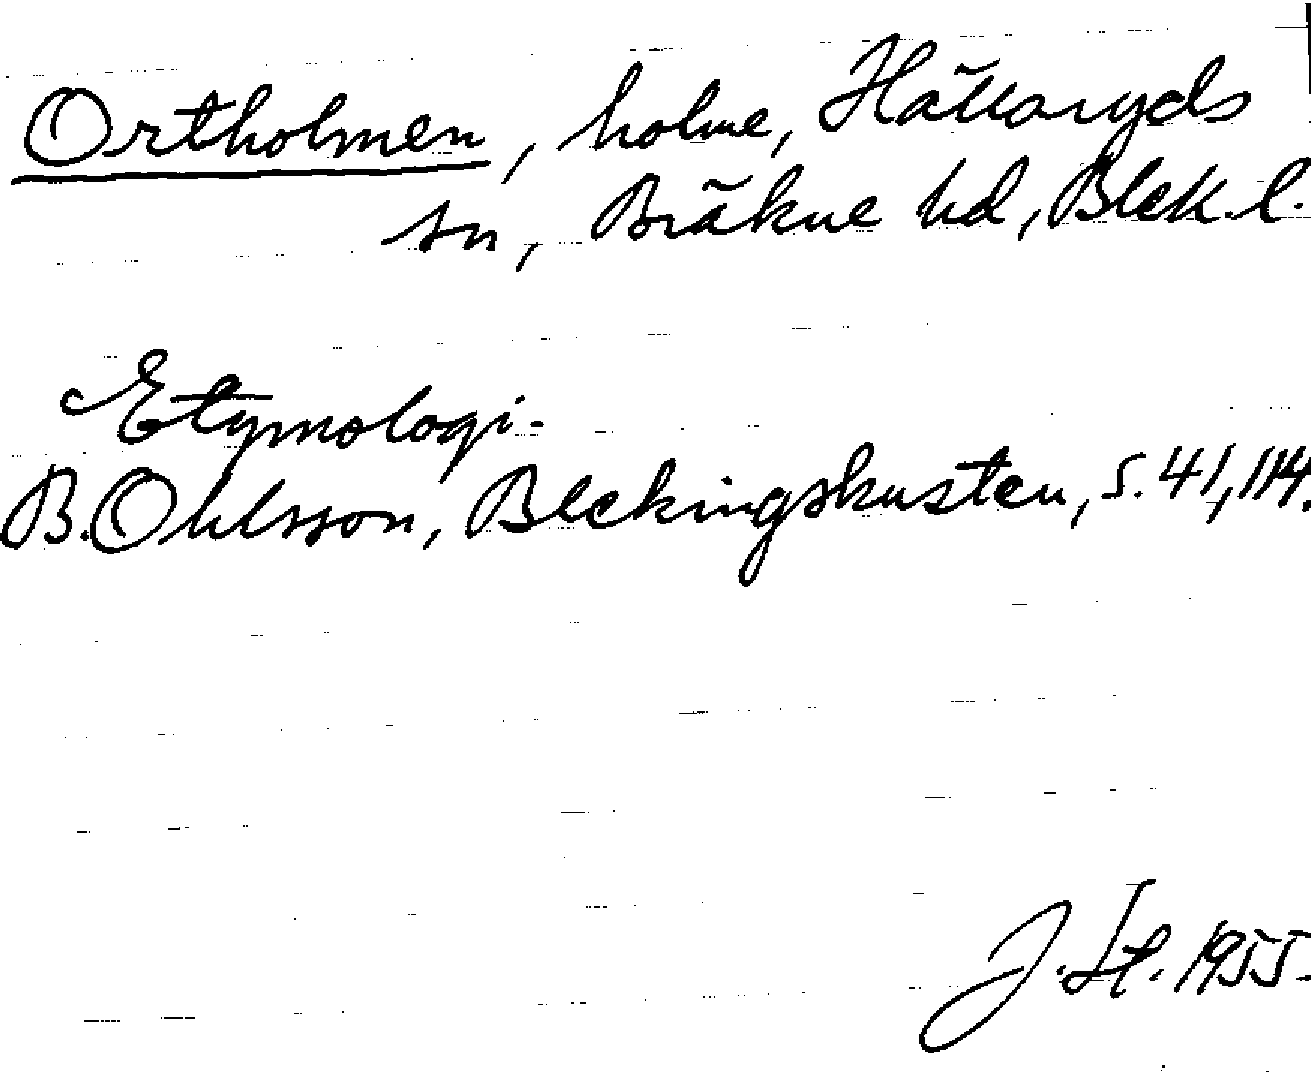 Ortholmen, holme, Hällaryds
sn, Bräkne hd, Blek. l.
Etymologi.
B. Ohlsson, Blekingskusten, s. 41, 114.
J. St. 1955.